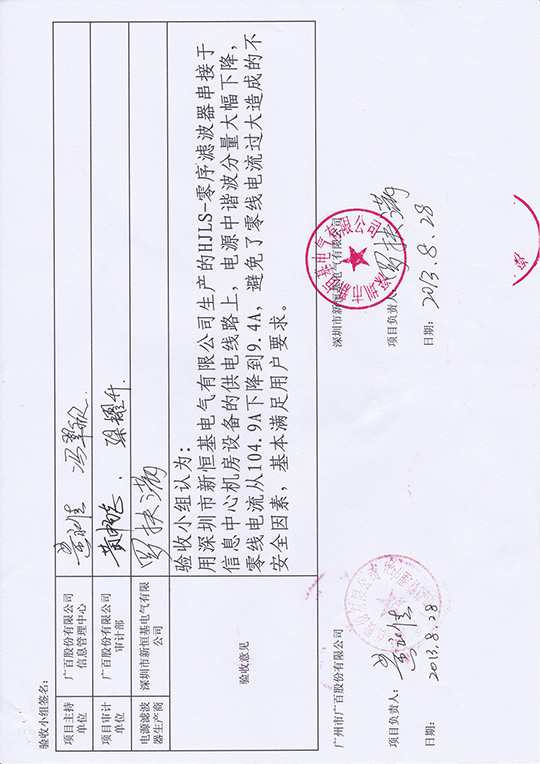 验收小组签名:
项目主持
单位
广百股份有限公司
信息管理中心
项目审计
单位
广百股份有限公司
审计部
电源滤波
器生产商
深圳市新恒基电气有限
公司
罗扶满
验收意见
验收小组认为:
用深圳市新恒基电气有限公司生产的HJLS-零序滤波器串接于
信息中心机房设备的供电线路上,电源中谐波分量大幅下降,
零线电流从104.9A下降到9.4A,避免了零线电流过大造成的不
安全因素,基本满足用户要求。
广州市广百股份有限公司
项目负责人:
日期: 2013.8.28
深圳市新恒基电气有限公司
项目负责人: 罗扶满
日期: 2013.8.28
深圳市新恒基电气有限公司